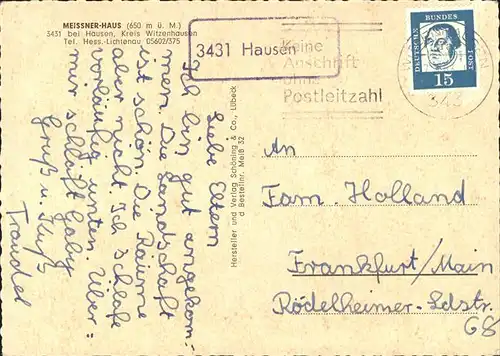 MEISSNER-HAUS (650 m ü. M.)
3431 bei Hausen, Kreis Witzenhausen
Tel. Hess.-Lichtenau 05602/375
3431 Hausen
Keine
Anschrift
ohne
Postleitzahl
343
DEUTSCHE BUNDESPOST
15
Liebe Eltern
Ich bin gut angekom-
men. Die Landschaft
ist schön. Die Räume
aber nicht. Ich schlafe
vorläufig unten. Über
mir schläft Gaby
Gruß u. Kuß
Traudel
Hersteller und Verlag Schöning & Co., Lübeck
Bestellnr. Meiß 32
An
Fam. Holland
Frankfurt/Main
Rödelheimer-Ldstr.
68